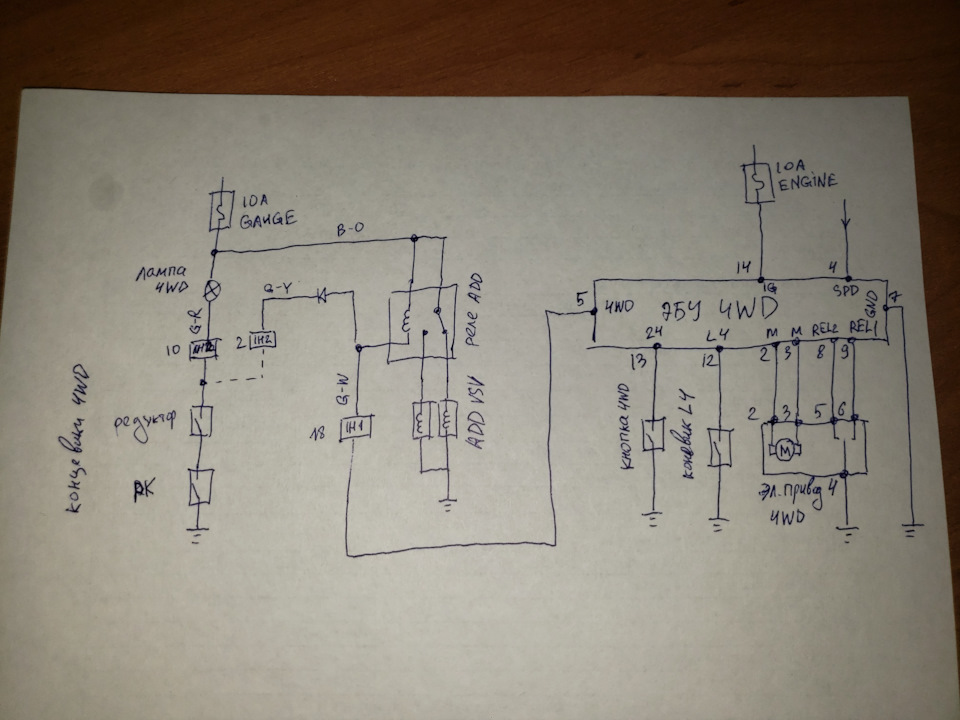 10A
GAUGE
B-O
Лампа
4WD
G-R
10
IH2
G-Y
2
IH2
реле ADD
концевики 4WD
редуктор
РК
G-W
18
IH1
ADD VSV
10A
ENGINE
14
IG
4
SPD
5
4WD
ЭБУ 4WD
GND
7
24
13
L4
12
M
2
M
3
REL2
8
REL1
9
кнопка 4WD
концевик L4
2
3
5
6
M
Эл. привод
4WD
4